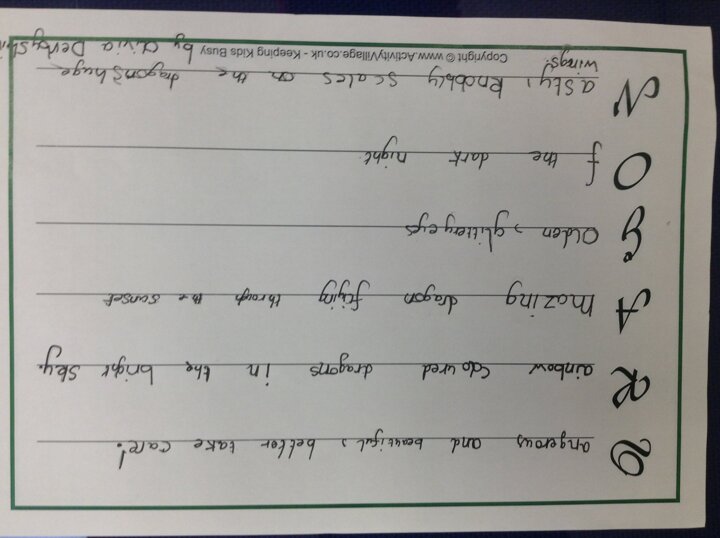 Dangerous and beautiful, better take care!
Rainbow coloured dragons in the bright sky.
Amazing dragon flying through the sunset
Golden, glittery eyes
Of the dark night.
Nasty, knobbly scales on the dragons huge
wings. by Olivia
Copyright © www.ActivityVillage.co.uk - Keeping Kids Busy